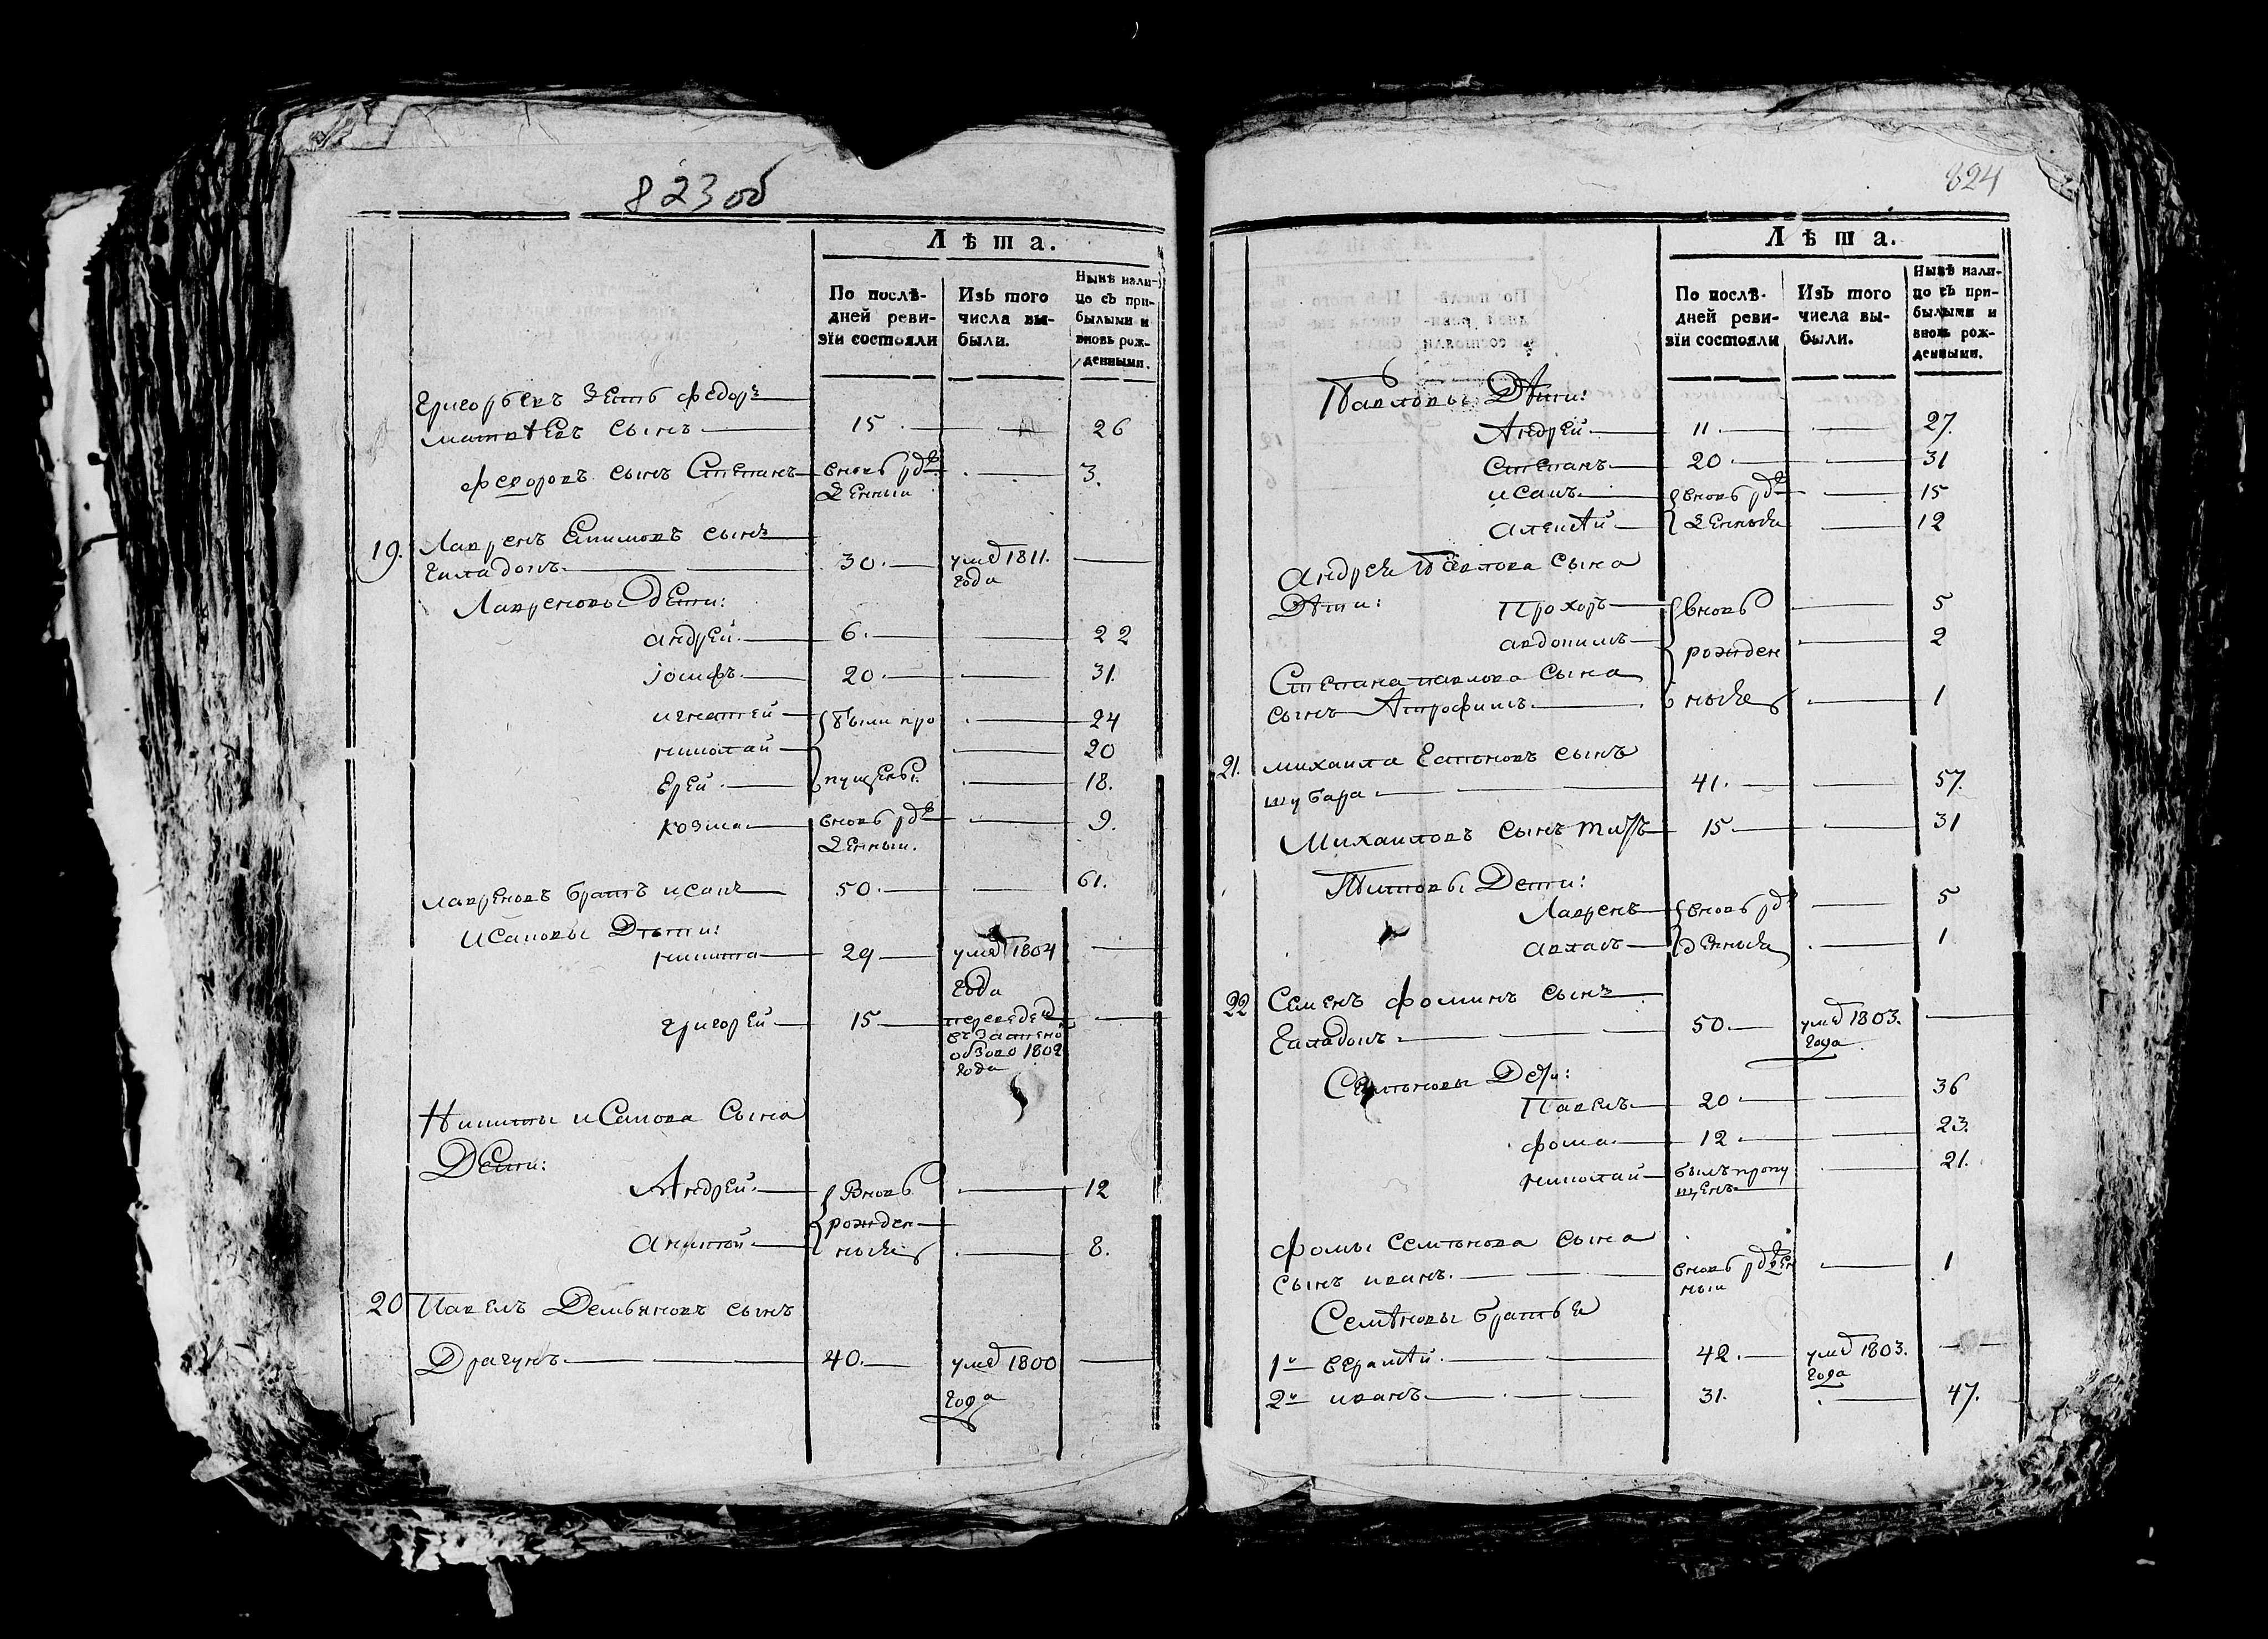 823 об
Лѣта.
По послѣ-
дней реви-
зіи состояли
Изъ того
числа вы-
были.
Нынѣ нали-
цо съ при-
былыми и
вновь рож-
денными.
Григорьевъ зеть федоръ
матвѣевъ сынъ 15 26
федоровъ сынъ Степанъ вновь рож 3.
денныи
19. Лавренъ сынъ
30. умеръ 1811.
года
Лавреновы дети:
андрей. 6. 22
іосифъ. 20. 31.
игнатей были про 24
николай 20
ерей пущены. 18.
козма вновь рож 9.
денныи.
лавреновъ братъ исаиъ 50. 61.
исаповы Дѣти:
никита 29 умеръ 1804
года
григорей 15 переведенъ
1802
года
Никиты исапова сына
Дети:
Андрей. Вновь 12
рожден
ные 8.
20 Павелъ Демьяновъ сынъ
Драгунъ. 40. умеръ 1800
года
824
Лѣта.
По послѣ-
дней реви-
зіи состояли
Изъ того
числа вы-
были.
Нынѣ нали-
цо съ при-
былыми и
вновь рож-
денными.
Павловы Дѣти:
Андрей 11 27.
Степанъ 20 31
исаиъ вновь рож 15
алексѣй денные 12
андрея Павлова сына
Дѣти: Прохоръ вновь 5
рожден 2
Степана павлова сына
сынъ ные 1
21. михаила сынъ
шубара 41. 57.
Михаиловъ сынъ титъ 15 31
Титовы Дети:
Лавренъ вновь рож 5
денные 1
22 Семенъ фоминъ сынъ
50. умеръ 1803.
года
Семѣновы Дети:
Павелъ 20 36
фома 12 23.
николай былъ пропу 21.
щенъ
фомы семѣнова сына
сынъ иванъ. вновь рожден 1
ныи
Семѣновы братья
1й 42. умеръ 1803.
года
2й иванъ 31. 47.